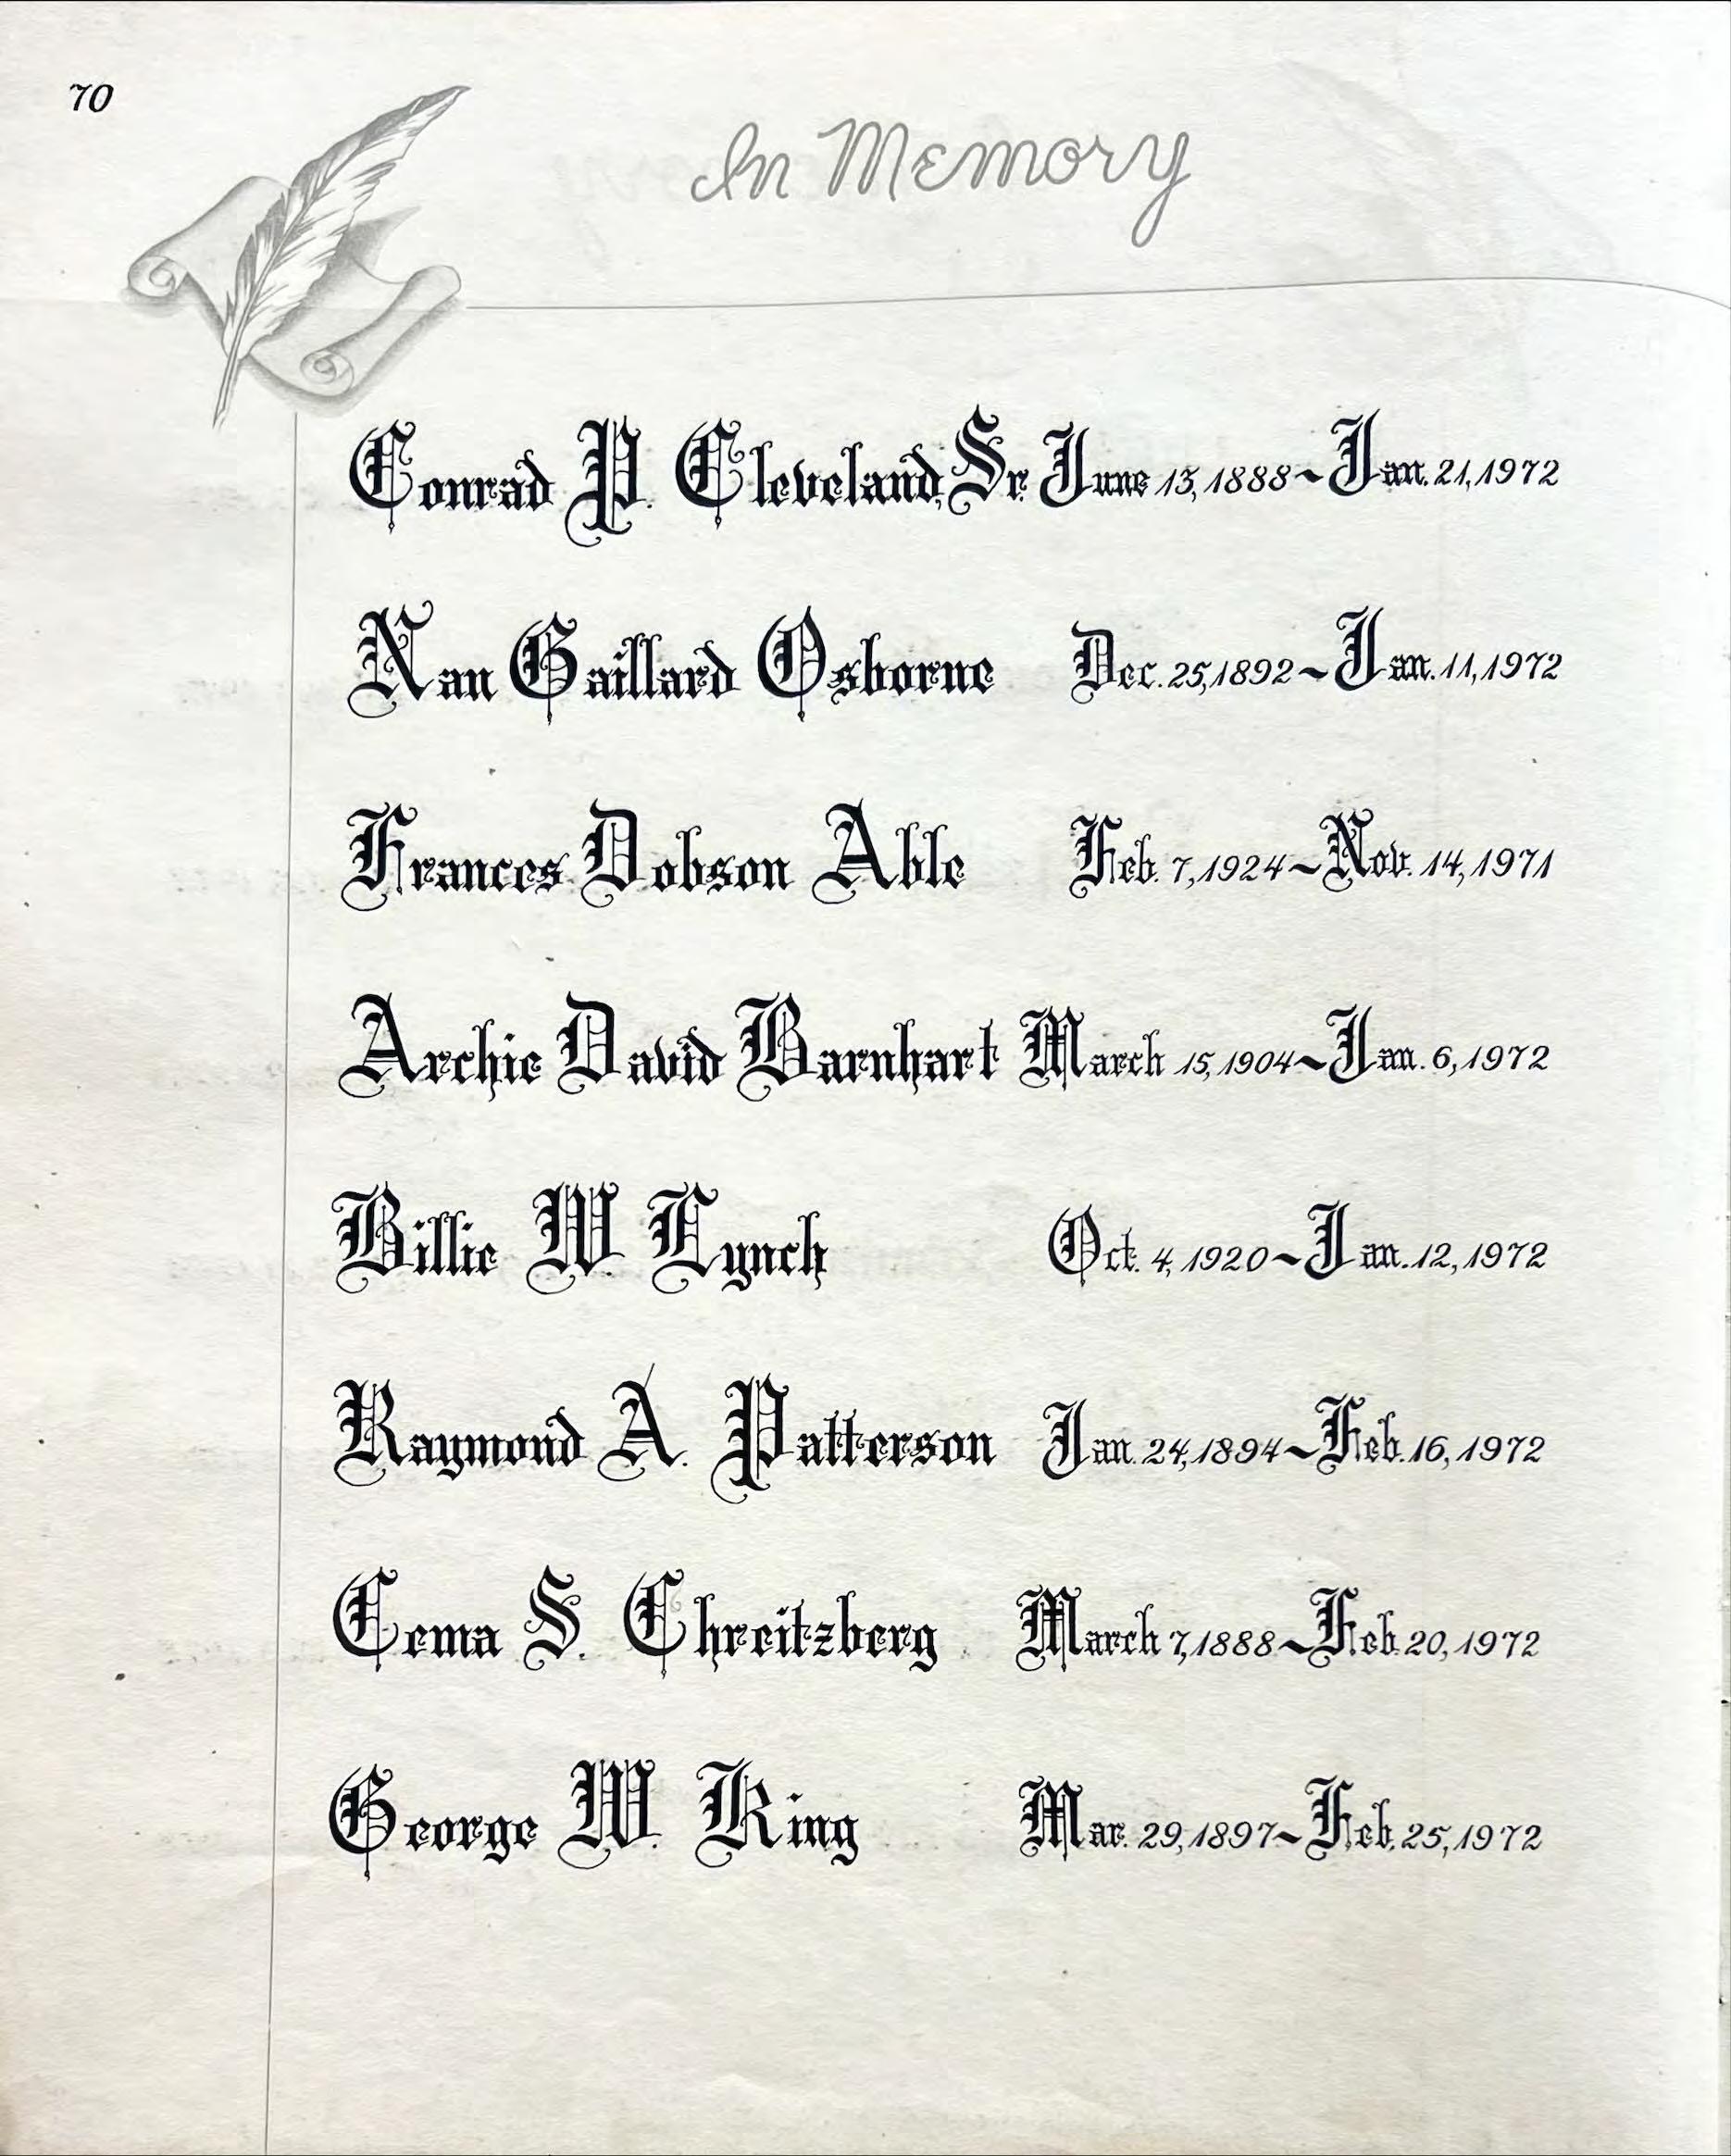 70
In Memory
Conrad P. Cleveland, Sr. June 13, 1888 ~ Jan. 21, 1972
Nan Gaillard Osborne Dec. 25, 1892 ~ Jan. 11, 1972
Frances Dobson Able Feb. 7, 1924 ~ Nov. 14, 1971
Archie David Barnhart March 15, 1904 ~ Jan. 6, 1972
Billie W. Lynch Oct. 4, 1920 ~ Jan. 12, 1972
Raymond A. Patterson Jan. 24, 1894 ~ Feb. 16, 1972
Cema S. Chreitzberg March 7, 1888 ~ Feb. 20, 1972
George W. King Mar. 29, 1897 ~ Feb. 25, 1972